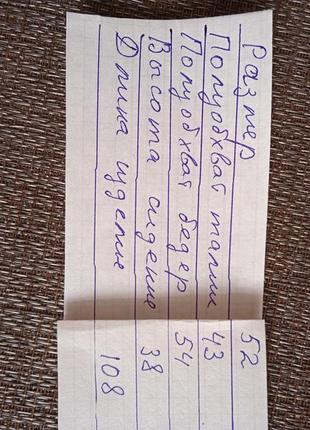 Размер 52
Полуобхват талии 43
Полуобхват бедер 54
Высота сидение 38
Длина изделие 108